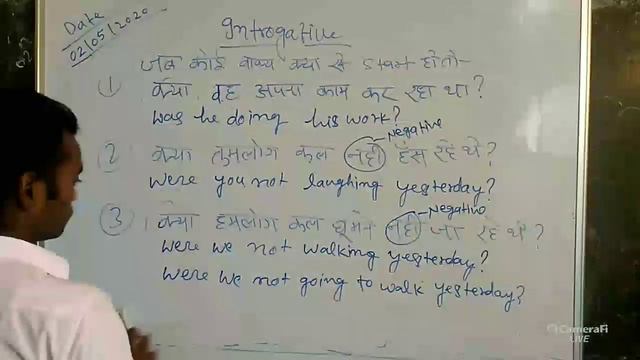 Date
02/05/2020
Introgative
जब कोई वाक्य क्या से start हो तो-
① क्या वह अपना काम कर रहा था?
was he doing his work?
Negative
② क्या तुमलोग कल नहीं हँस रहे थे?
Were you not laughing yesterday?
Negative
③ क्या हमलोग कल घूमने नहीं जा रहे थे?
Were we not walking yesterday?
Were we not going to walk yesterday?
CameraFi
LIVE